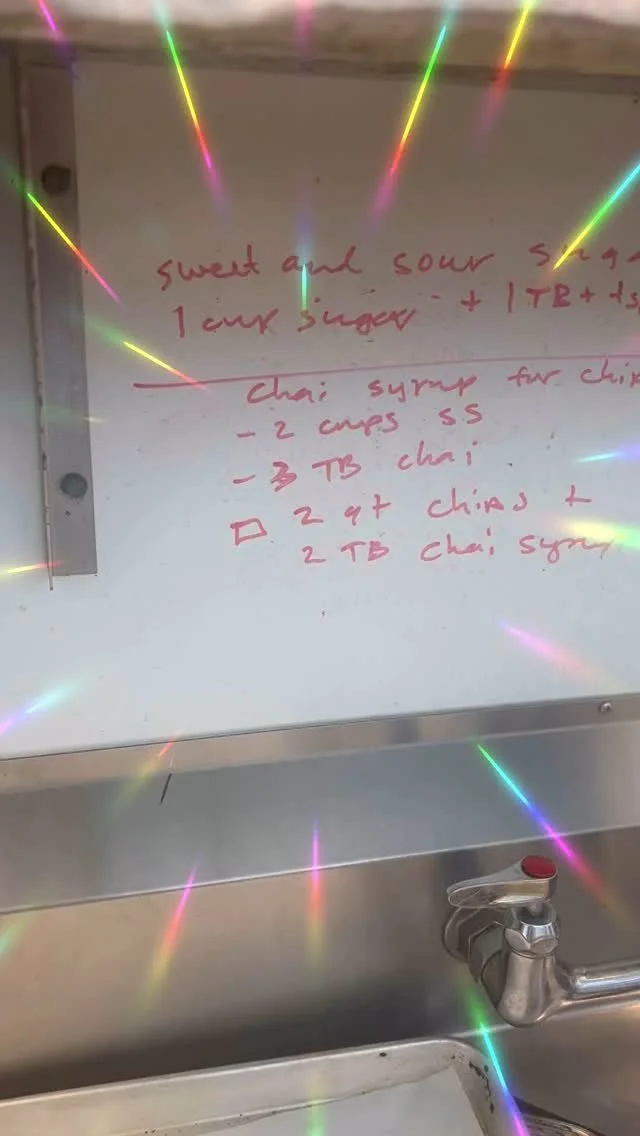 sweet and sour suga
1 cup sugar + 1 TB + ts
chai syrup for chip
- 2 cups SS
- 3 TB chai
□ 2 qt chips +
2 TB chai syrup